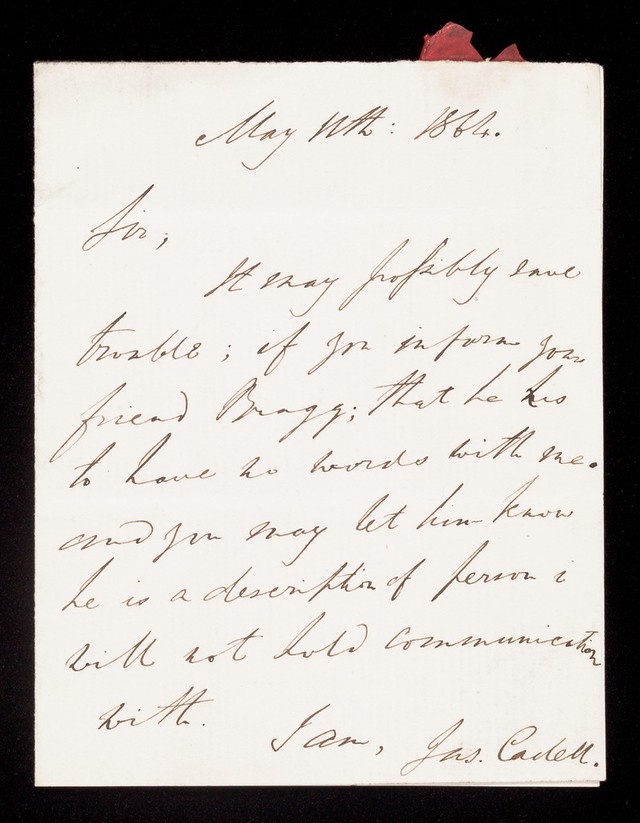 May 11th: 1864.
Sir,
It may possibly save
trouble; if you inform your
friend Bragg; that he has
to have no words with me.
and you may let him know
he is a description of person i
will not hold communication
with.
I am, Jas. Cadell.